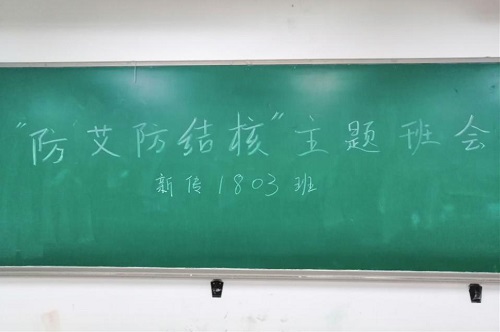 "防艾防结核"主题班会
新传1803班